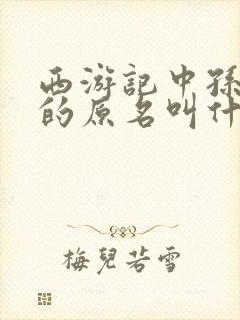 西游記中孫
的原名叫什
梅兒若雪